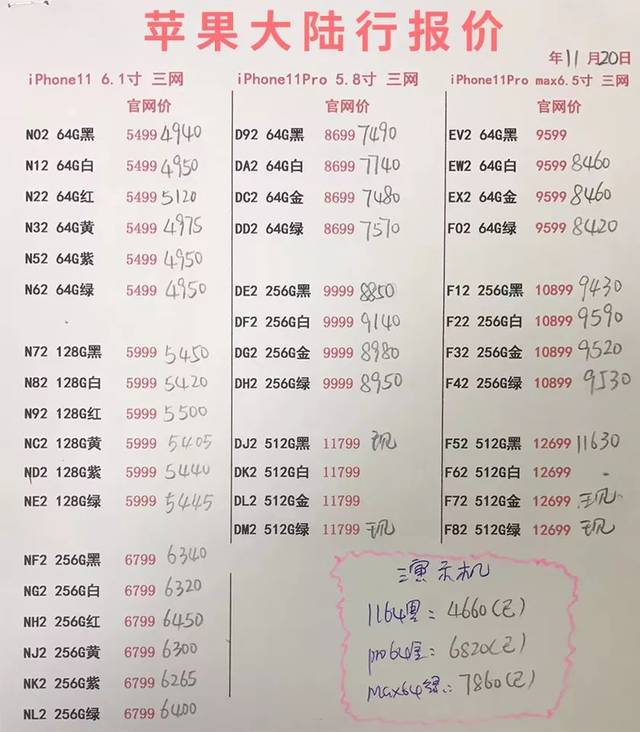 苹果大陆行报价
年11月20日
iPhone11 6.1寸 三网
官网价
N02 64G黑 5499 4940
N12 64G白 5499 4950
N22 64G红 5499 5120
N32 64G黄 5499 4975
N52 64G紫 5499 4950
N62 64G绿 5499 4950
N72 128G黑 5999 5450
N82 128G白 5999 5420
N92 128G红 5999 5500
NC2 128G黄 5999 5405
ND2 128G紫 5999 5440
NE2 128G绿 5999 5445
NF2 256G黑 6799 6340
NG2 256G白 6799 6320
NH2 256G红 6799 6450
NJ2 256G黄 6799 6300
NK2 256G紫 6799 6265
NL2 256G绿 6799 6400
iPhone11Pro 5.8寸 三网
官网价
D92 64G黑 8699 7490
DA2 64G白 8699 7740
DC2 64G金 8699 7480
DD2 64G绿 8699 7570
DE2 256G黑 9999 8850
DF2 256G白 9999 9140
DG2 256G金 9999 8980
DH2 256G绿 9999 8950
DJ2 512G黑 11799 现
DK2 512G白 11799
DL2 512G金 11799
DM2 512G绿 11799 现
iPhone11Pro max6.5寸 三网
官网价
EV2 64G黑 9599
EW2 64G白 9599 8460
EX2 64G金 9599 8460
F02 64G绿 9599 8420
F12 256G黑 10899 9430
F22 256G白 10899 9590
F32 256G金 10899 9520
F42 256G绿 10899 9530
F52 512G黑 12699 11630
F62 512G白 12699
F72 512G金 12699 现
F82 512G绿 12699 现
演示机
1164黑：4660(乏)
pro64金：6820(乏)
Max64绿：7860(乏)